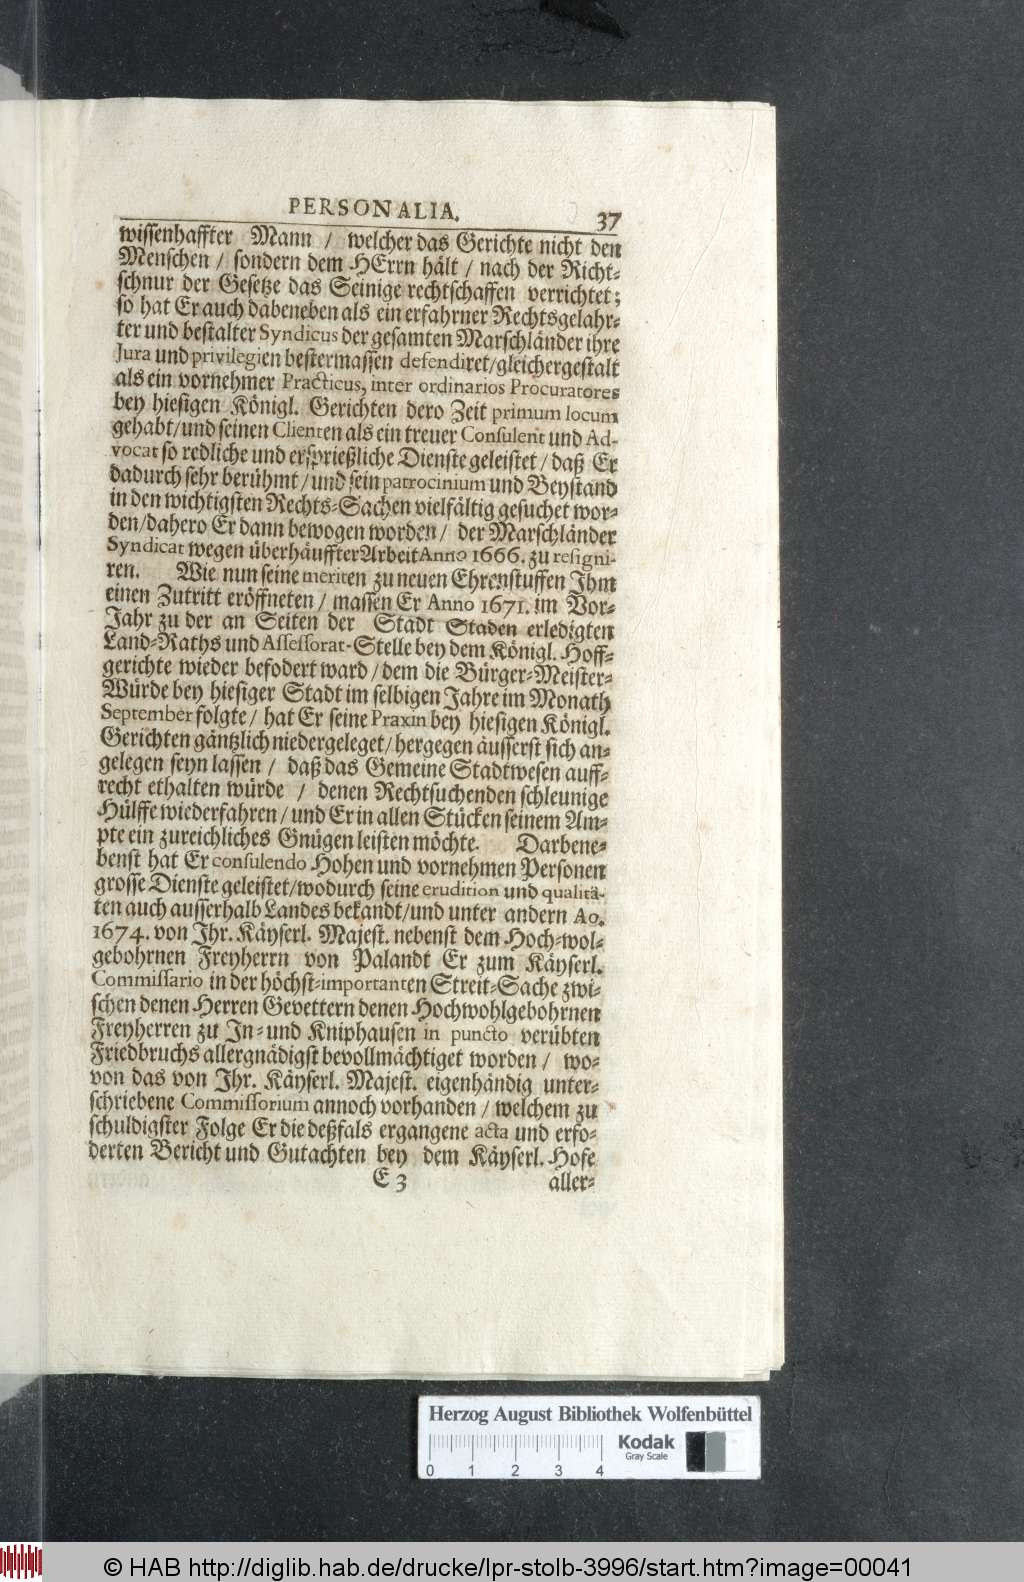 PERSONALIA. 37
wissenhaffter Mann / welcher das Gerichte nicht den
Menschen / sondern dem HErrn hält / nach der Richt-
schnur der Gesetze das Seinige rechtschaffen verrichtet;
so hat Er auch dabeneben als ein erfahrner Rechtsgelahr-
ter und bestalter Syndicus der gesamten Marschländer ihre
Jura und privilegien bestermassen defendiret/gleichergestalt
als ein vornehmer Practicus, inter ordinarios Procuratores
bey hiesigen Königl. Gerichten dero Zeit primum locum
gehabt/und seinen Clienten als ein treuer Consulent und Ad-
vocat so redliche und ersprießliche Dienste geleistet / daß Er
dadurch sehr berühmt / und sein patrocinium und Beystand
in den wichtigsten Rechts-Sachen vielfältig gesuchet wor-
den/dahero Er dann bewogen worden / der Marschländer
Syndicat wegen überhäuffter Arbeit Anno 1666. zu resigni-
ren. Wie nun seine meriten zu neuen Ehrenstuffen Ihm
einen Zutritt eröffneten / massen Er Anno 1671. im Vor-
Jahr zu der an Seiten der Stadt Staden erledigten
Land-Raths und Assessorat-Stelle bey dem Königl. Hoff-
gerichte wieder befodert ward / dem die Bürger-Meister-
Würde bey hiesiger Stadt im selbigen Jahre im Monath
September folgte / hat Er seine Praxin bey hiesigen Königl.
Gerichten gäntzlich niedergeleget / hergegen äusserst sich an-
gelegen seyn lassen / daß das Gemeine Stadtwesen auff-
recht ethalten würde / denen Rechtsuchenden schleunige
Hülffe wiederfahren / und Er in allen Stücken seinem Am-
pte ein zureichliches Gnügen leisten möchte. Darbene-
benst hat Er consulendo Hohen und vornehmen Personen
grosse Dienste geleistet/wodurch seine erudition und qualitä-
ten auch ausserhalb Landes bekandt/und unter andern Ao.
1674. von Ihr. Käyserl. Majest. nebenst dem Hoch-wol-
gebohrnen Freyherrn von Palandt Er zum Käyserl.
Commissario in der höchst-importanten Streit-Sache zwi-
schen denen Herren Gevettern denen Hochwohlgebohrnen
Freyherren zu In- und Kniphausen in puncto verübten
Friedbruchs allergnädigst bevollmächtiget worden / wo-
von das von Ihr. Käyserl. Majest. eigenhändig unter-
schriebene Commissorium annoch vorhanden / welchem zu
schuldigster Folge Er die deßfals ergangene acta und erfo-
derten Bericht und Gutachten bey dem Käyserl. Hofe
E 3 aller-
Herzog August Bibliothek Wolfenbüttel
Kodak
Gray Scale
0 1 2 3 4
© HAB http://diglib.hab.de/drucke/lpr-stolb-3996/start.htm?image=00041